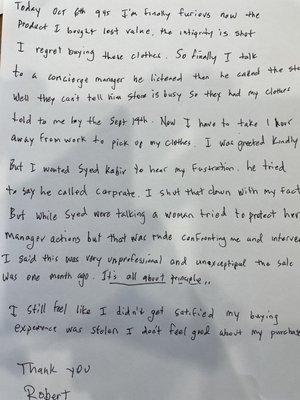 Today Oct 6th 945 I'm finally furious now the
Product I bought lost value. the intigrity is shot
I regret buying these clothes. So finally I talk
to a concierge manager he listened then he called the sto
Well they can't tell him store is busy so they had my clothes
told to me by the Sept 19th. Now I have to take 1 hour
away from work to pick up my clothes. I was greeted kindly
But I wanted Syed Kabir to hear my Fustration. he tried
to say he called carprate. I shut that down with my fact
But while Syed were talking a woman tried to protect her
manager actions but that was rude confronting me and interven
I said this was very unprofessional and unexceptipal the sale
was one month ago. It's all about principle..
I still feel like I didn't get satified my buying
experence was stolen I don't feel good about my purchase
Thank you
Robert